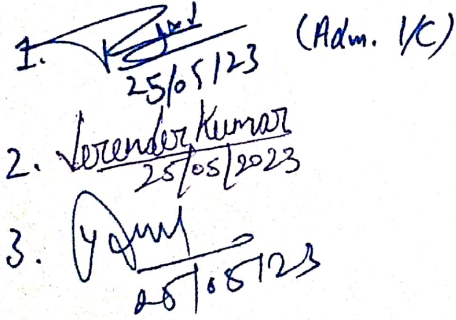 1. (Adm. I/C)
25/05/23
2. Verender Kumar
25/05/2023
3.
25/05/23